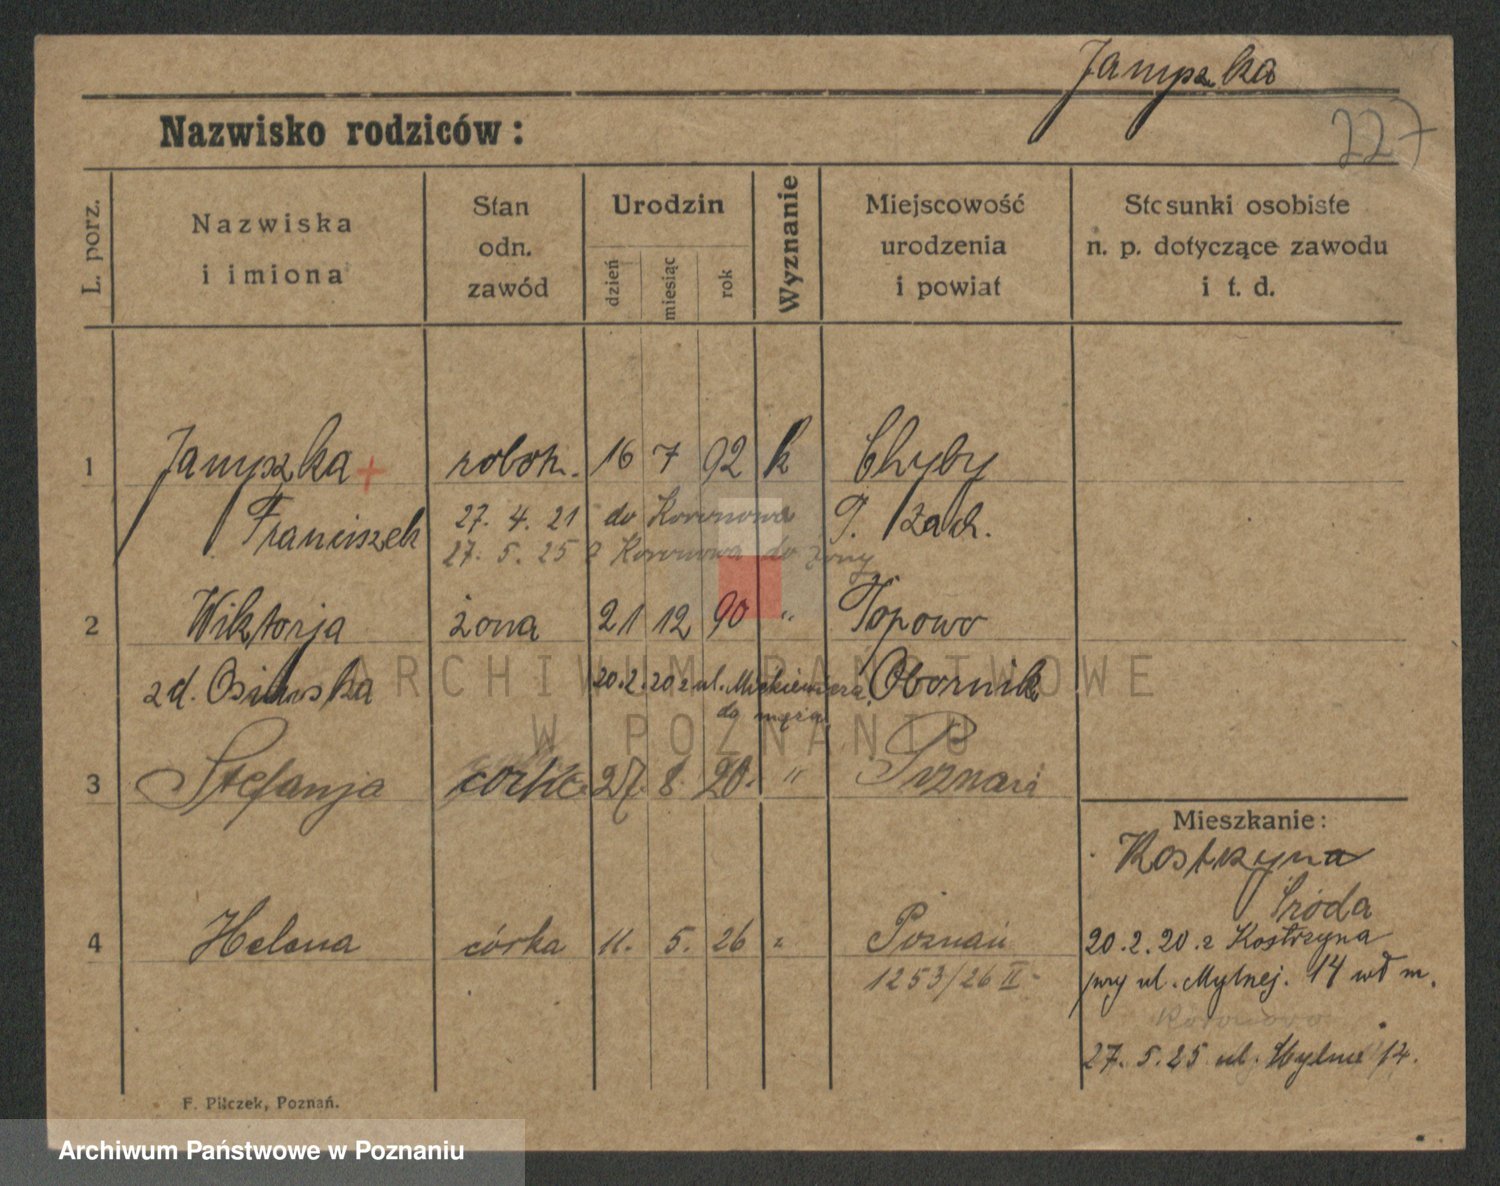 Jamyszka
227
Nazwisko rodziców:
L. porz.
Nazwiska
i imiona
Stan
odn.
zawód
Urodzin
dzień
miesiąc
rok
Wyznanie
Miejscowość
urodzenia
i powiat
Stosunki osobiste
n. p. dotyczące zawodu
i t. d.
1 Jamyszka + robotn. 16 7 92 k Chyby
Franciszek 27. 4. 21 do Koronowa P. Zach.
27. 5. 25 z Koronowa do żony
2 Wiktorja żona 21 12 90 " Topowo
zd. Osińska 20.2.20 z ul. Mickiewicza Obornik
do męża
3 Stefanja córka 27. 8. 20. " Poznań
Mieszkanie:
Kostrzyna
Środa
4 Helena córka 11. 5. 26 " Poznań
20.2.20 z Kostrzyna
1253/26 II
przy ul. Mylnej. 14 wd m.
Koronowo
27. 5. 25 ul. Mylna 14.
F. Pilczek, Poznań.
ARCHIWUM PAŃSTWOWE
W POZNANIU
Archiwum Państwowe w Poznaniu